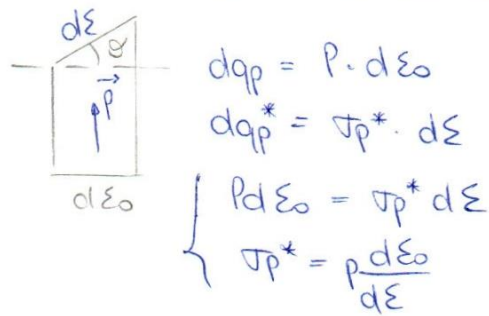 dΣ
ϑ
P⃗
dΣ₀
dqp = P · dΣ₀
dqp* = σp* · dΣ
{ PdΣ₀ = σp* dΣ
σp* = P dΣ₀/dΣ